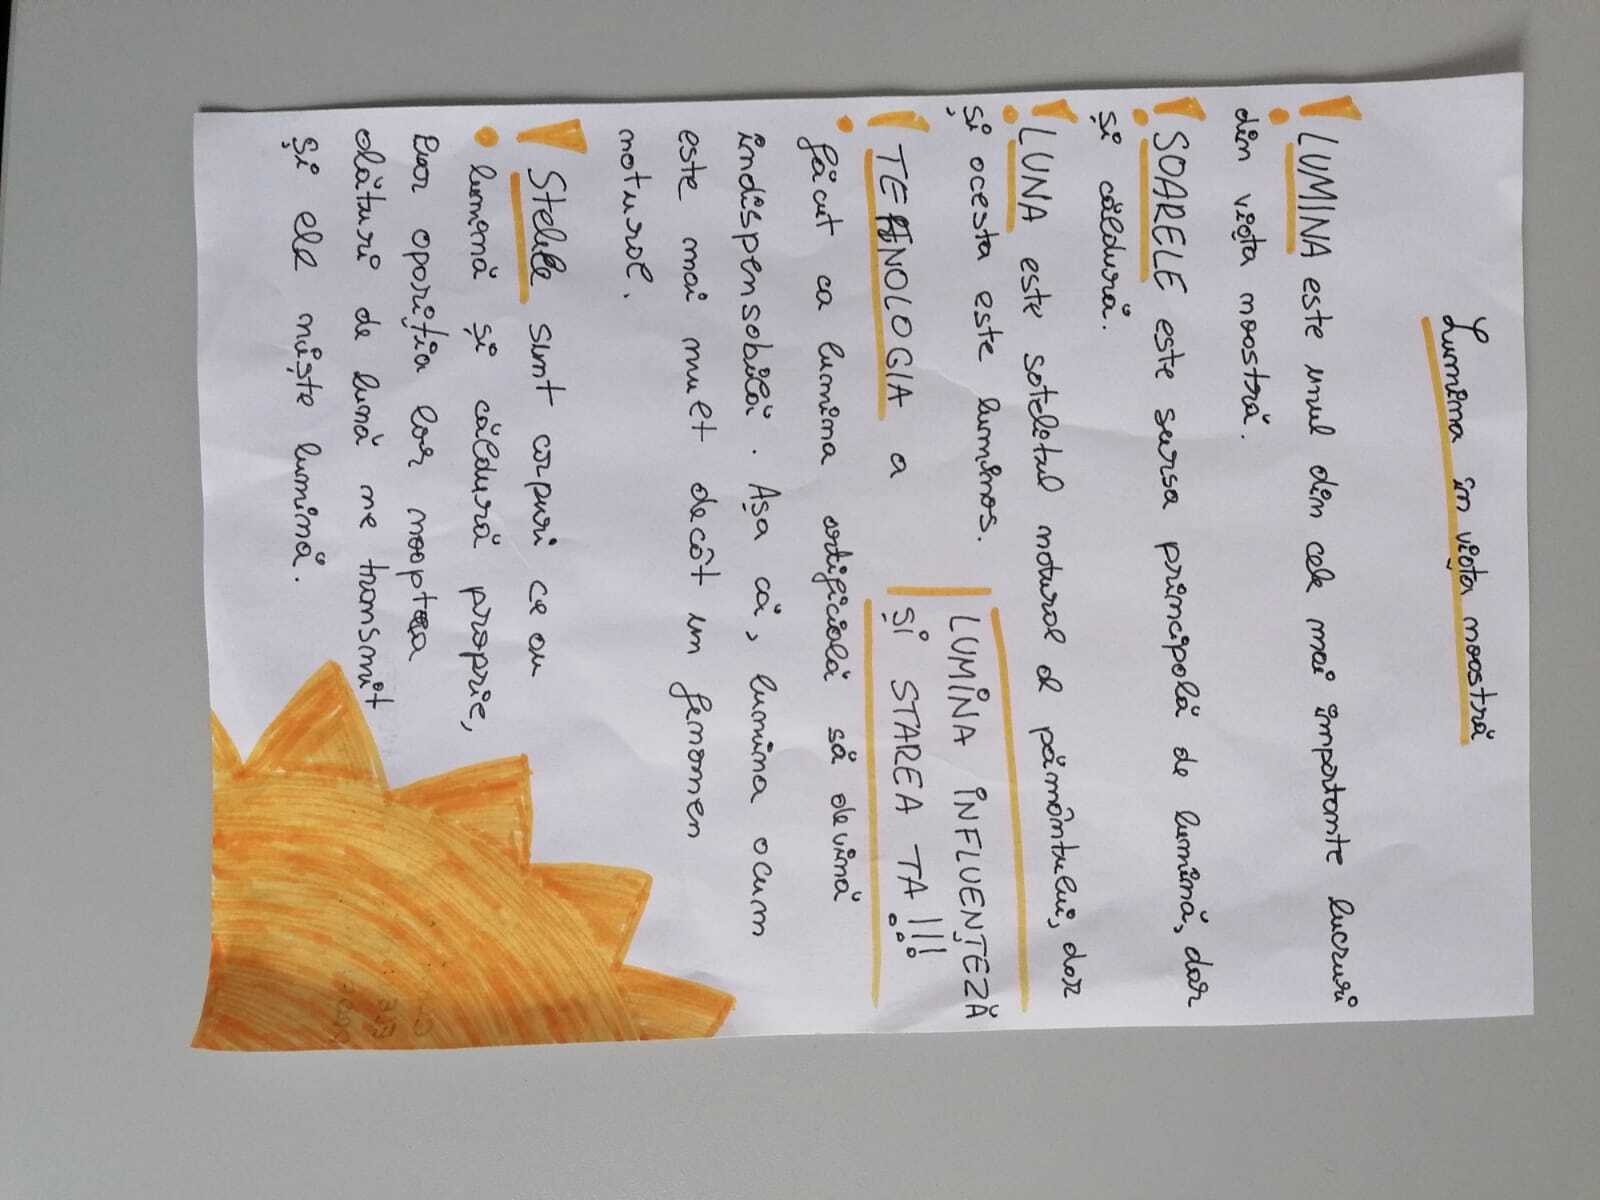 Lumina în viața noastră
LUMINA este unul din cele mai importante lucruri
din viața noastră.
SOARELE este sursa principală de lumină, dar
și căldură.
LUNA este satelitul natural al pământului, dar
și acesta este luminos.
LUMINA INFLUENȚEZĂ
ȘI STAREA TA!!!
TEHNOLOGIA a
făcut ca lumina artificială să devină
indispensabilă. Așa că, lumina acum
este mai mult decât un fenomen
natural.
Stelele sunt corpuri ce au
lumină și căldură proprie,
iar apariția lor noaptea
alături de lună ne transmit
și ele niște lumină.